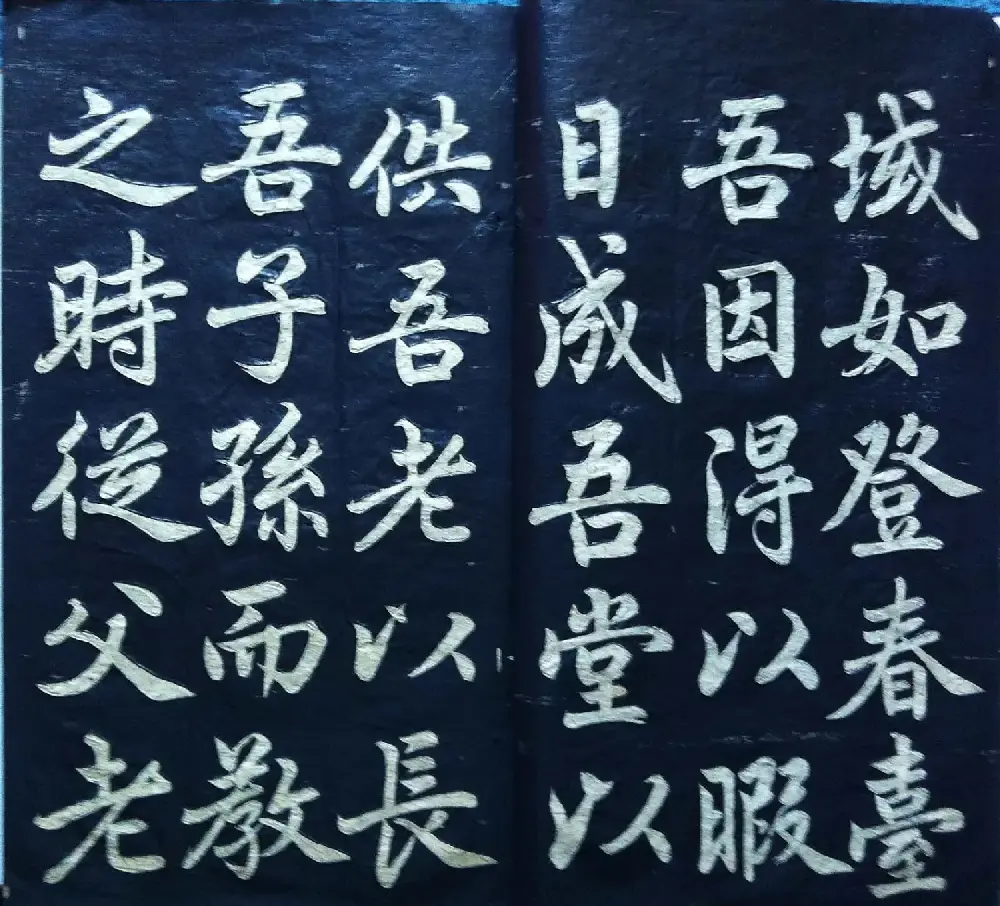 域如登春臺
吾因得以暇
日成吾堂以
供吾老以長
吾子孫而教
之時從父老